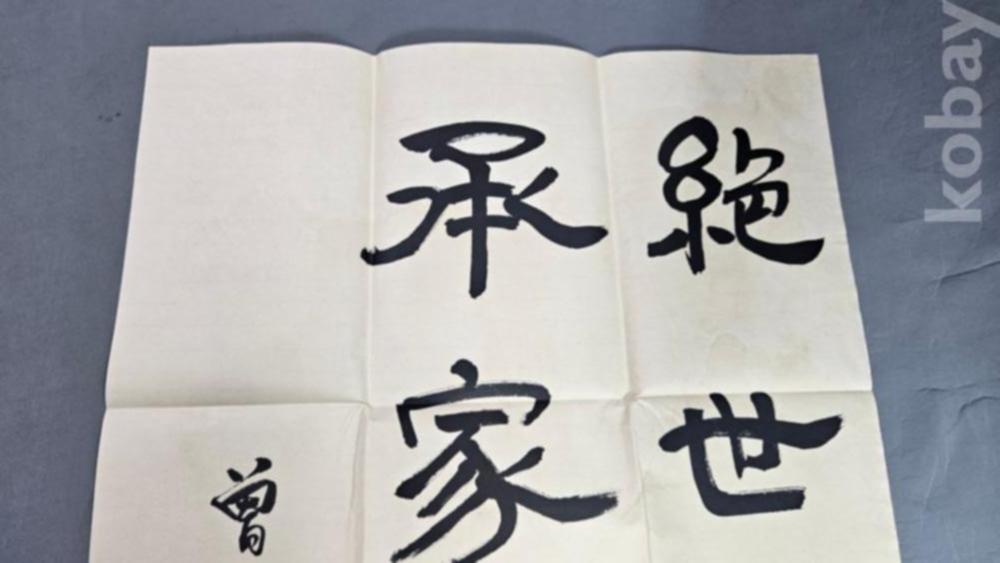 絶世
承家
曾
kobay